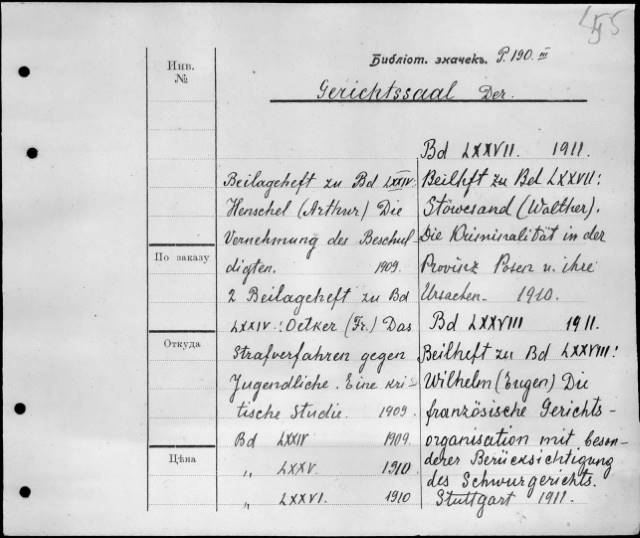 455
Библіот. значекъ. P. 190. III
Инв.
№
Gerichtssaal Der.
Beilageheft zu Bd LXXIV:
Henschel (Arthur) Die
Vernehmung des Beschul-
digten. 1909.
2 Beilageheft zu Bd
LXXIV: Oetker (Fr.) Das
Strafverfahren gegen
Jugendliche. Eine kri-
tische Studie. 1909.
Bd LXXIV 1909.
„ LXXV. 1910.
„ LXXVI. 1910
Bd LXXVII. 1911.
Beilheft zu Bd LXXVII:
Stöwesand (Walther).
Die Kriminalität in der
Provinz Posen u. ihre
Ursachen. 1910.
Bd LXXVIII 1911.
Beilheft zu Bd LXXVIII:
Wilhelm (Eugen) Die
französische Gerichts-
organisation mit beson-
derer Berücksichtigung
des Schwurgerichts.
Stuttgart 1911.
По заказу
Откуда
Цѣна